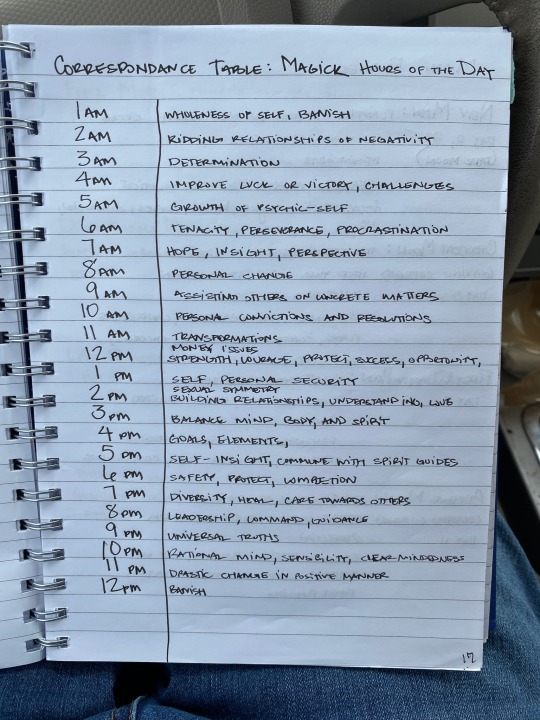 CORRESPONDANCE TABLE: MAGICK HOURS OF THE DAY
1 AM WHOLENESS OF SELF, BANISH
2 AM RIDDING RELATIONSHIPS OF NEGATIVITY
3 AM DETERMINATION
4 AM IMPROVE LUCK OR VICTORY, CHALLENGES
5 AM GROWTH OF PSYCHIC-SELF
6 AM TENACITY, PERSEVERANCE, PROCRASTINATION
7 AM HOPE, INSIGHT, PERSPECTIVE
8 AM PERSONAL CHANGE
9 AM ASSISTING OTHERS ON CONCRETE MATTERS
10 AM PERSONAL CONVICTIONS AND RESOLUTIONS
11 AM TRANSFORMATIONS
MONEY ISSUES
12 PM STRENGTH, COURAGE, PROTECT, SUCCESS, OPPORTUNITY,
1 PM SELF, PERSONAL SECURITY
SEXUAL SYMMETRY
2 PM BUILDING RELATIONSHIPS, UNDERSTANDING, LOVE
3 PM BALANCE MIND, BODY, AND SPIRIT
4 PM GOALS, ELEMENTS,
5 PM SELF-INSIGHT, COMMUNE WITH SPIRIT GUIDES
6 PM SAFETY, PROTECT, COMPLETION
7 PM DIVERSITY, HEAL, CARE TOWARDS OTHERS
8 PM LEADERSHIP, COMMAND, GUIDANCE
9 PM UNIVERSAL TRUTHS
10 PM RATIONAL MIND, SENSIBILITY, CLEAR-MINDEDNESS
11 PM DRASTIC CHANGE IN POSITIVE MANNER
12 PM BANISH
17